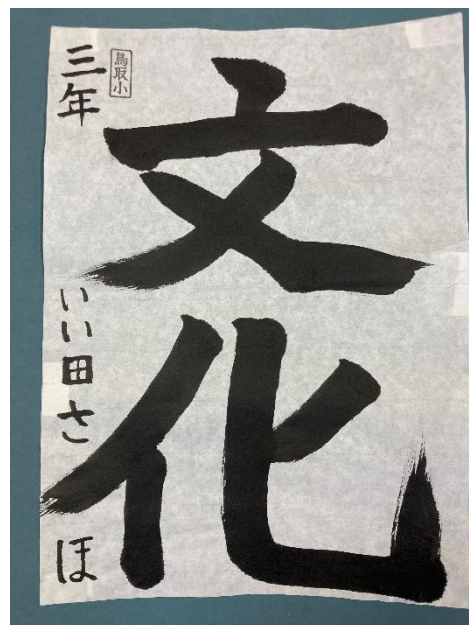 文化
鳥取小
三年
いい田さほ